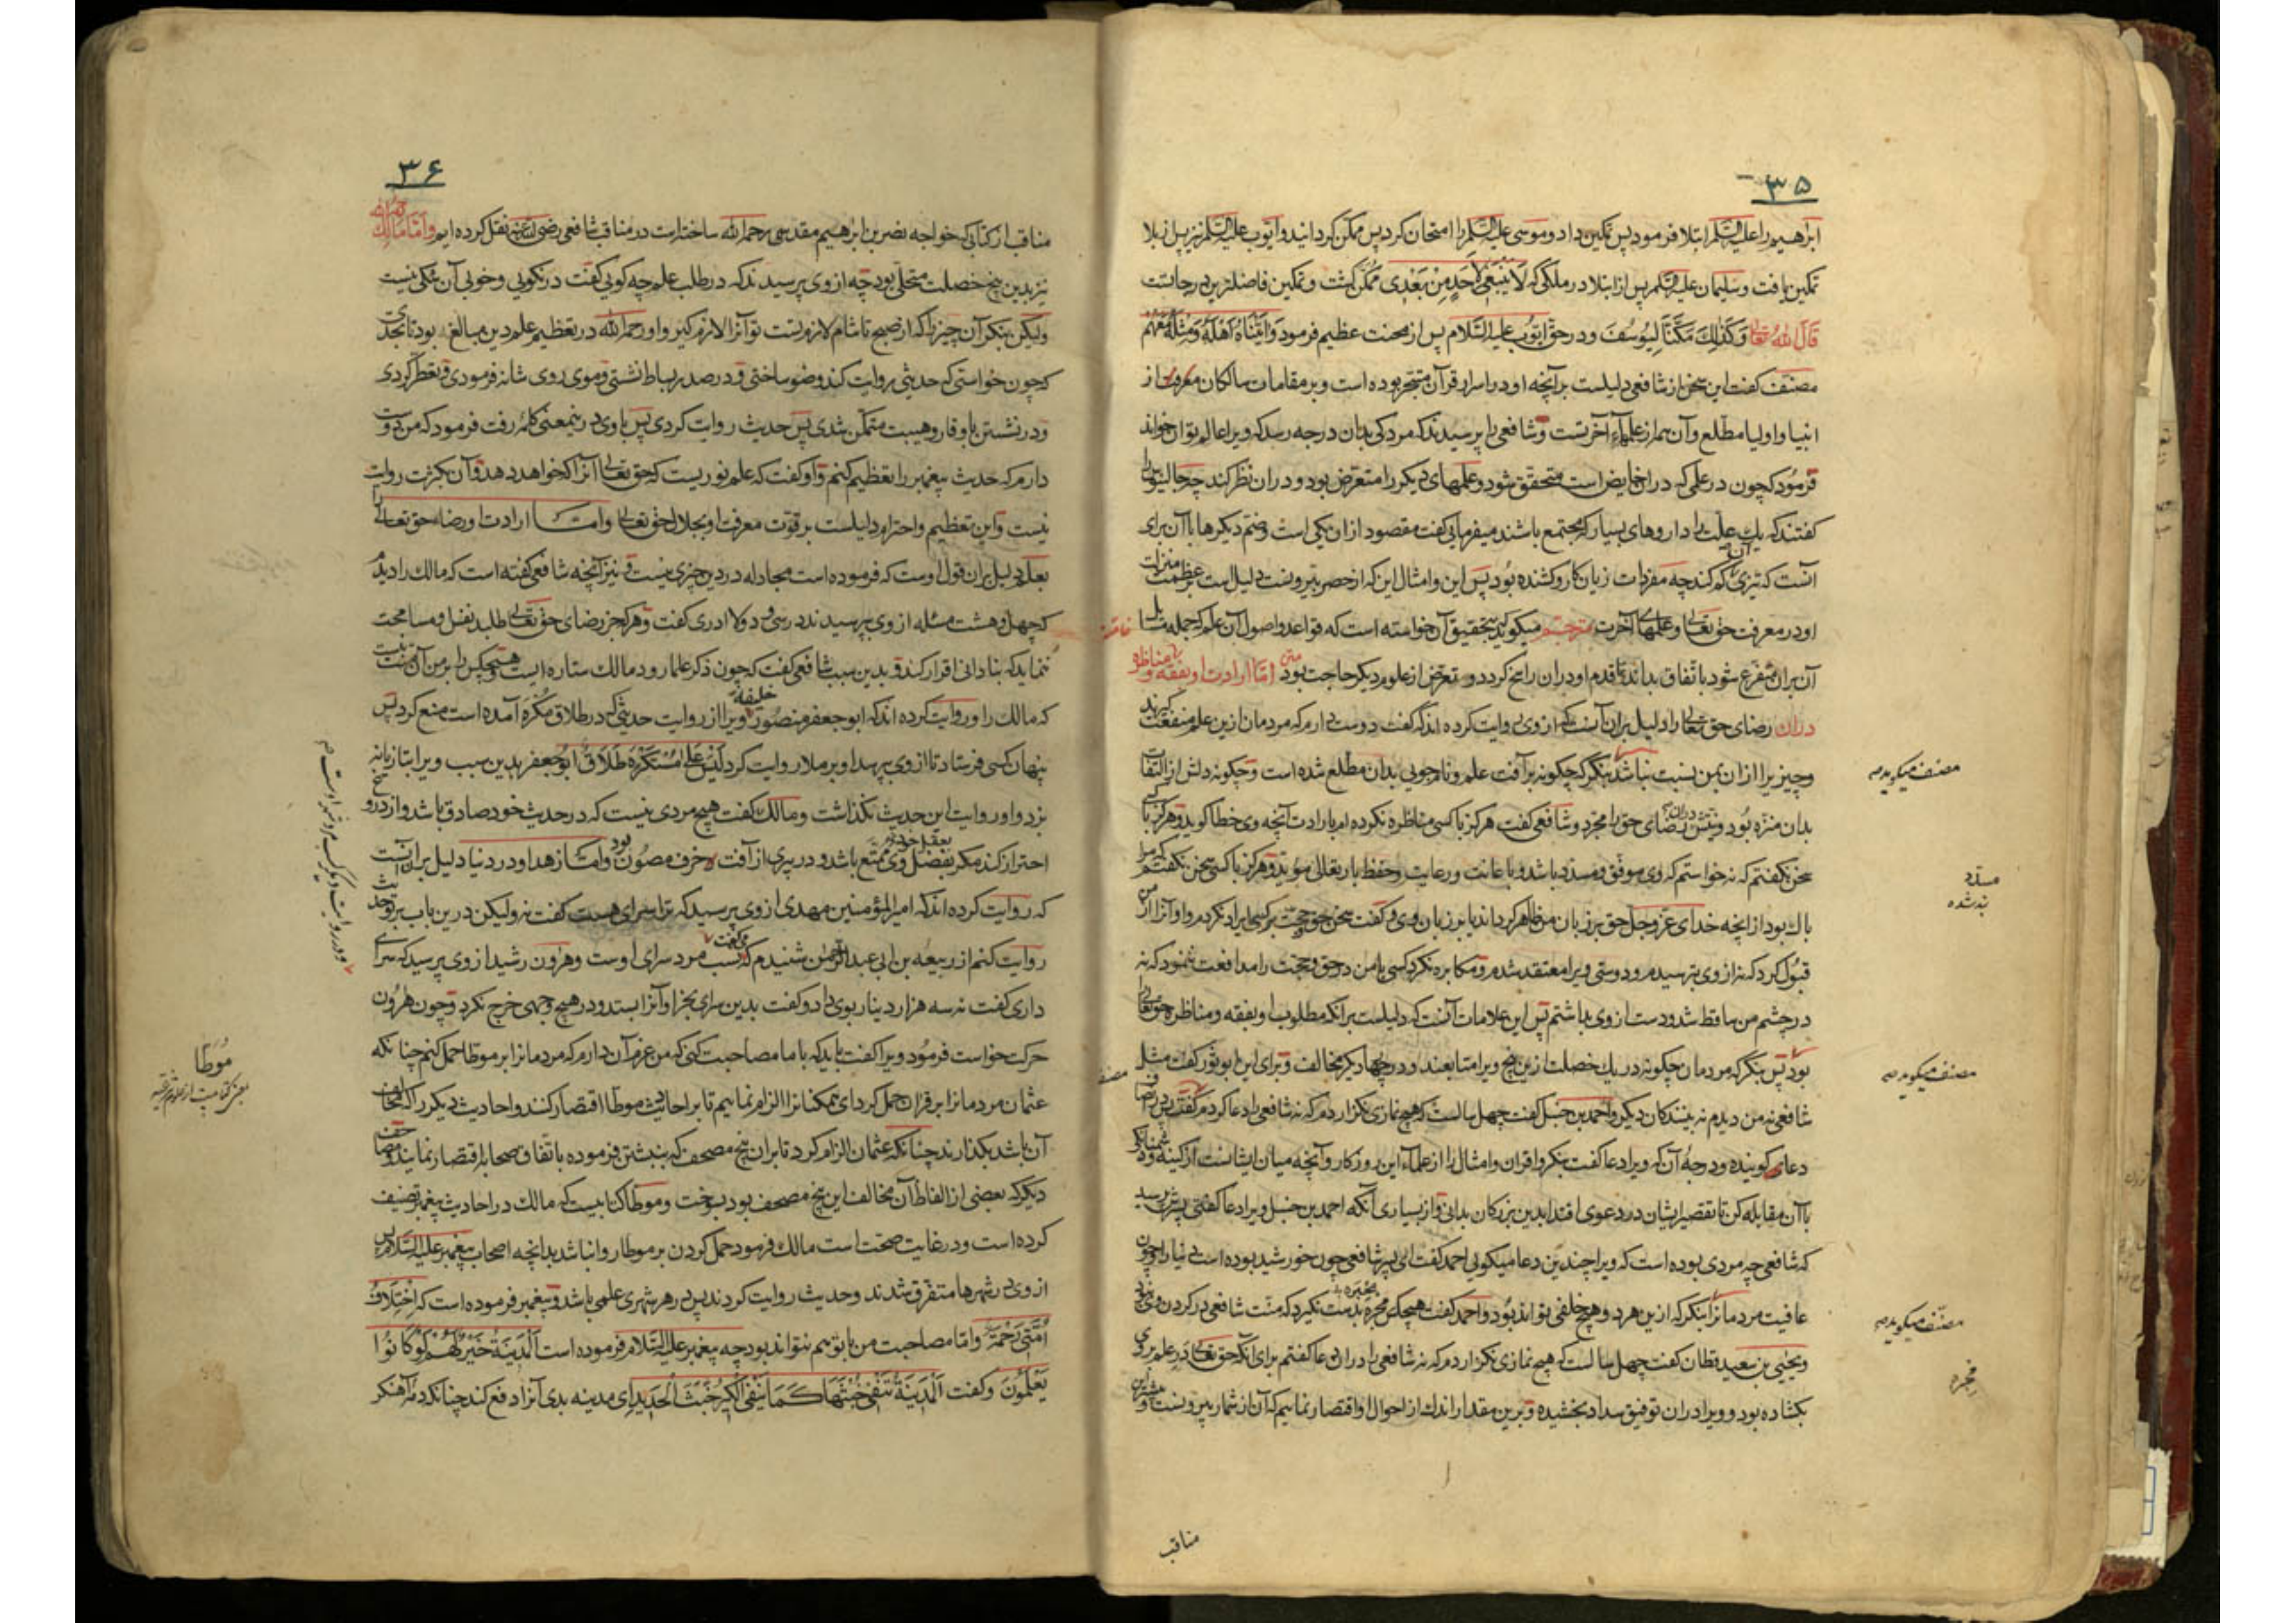 ۳۵
ابراهیم را علیه السّلم ابتلا فرمود پس تمکین داد و موسی علیه السّلم را امتحان کرد پس ممکن گردانید و ایّوب علیه السّلم نیز پس از بلا
تمکین یافت و سلیمان علیه السّلم پس از ابتلا در ملکی که لَا یَنْبَغِی لِاَحَدٍ مِنْ بَعْدِی مُمکّن گشت و تمکین فاضلترین درجاتست
قَالَ اللّٰهُ تَعَالَی وَکَذٰلِکَ مَکَّنَّا لِیُوسُفَ و در حق ایّوب علیه السّلام پس از محنت عظیم فرمود وَاٰتَیْنَاهُ اَهْلَهُ وَمِثْلَهُمْ مَعَهُمْ
مصنّف گفت این سخن از شافعی دلیلست بر آنچه او در اسرار قرآن متبحّر بوده است و بر مقامات سالکان از
انبیا و اولیا مطّلع و آن هم از علمهاء آخرتست و شافعی را پرسیدند که مرد کی بدان درجه رسد که ویرا عالم توان خواند
فرمُود که چون در علمی که در ان خایض است متحقّق شود و علمهای دیگر را متعرّض بود و در ان نظر کند چه جالینوس را
گفتند که یک علّت را داروهای بسیار که مجتمع باشند میفرمایی گفت مقصود از ان یکی است و ضمّ دیگرها با آن برای
آنست که تیزی آن کم کند چه مفردات زیان کار و کشنده بُود پس این و امثال این که از حصر بیرونست دلیل است بر عظمت منزلت
او در معرفت حق تعالی و علمهای آخرت مترجم میگوید بتحقیق آن خواسته است که قواعد و اصول آن علم که جمله مسایل
آن بران متفرّع شود باتّفاق بداند تا قدم او دران راسخ گردد و تعرّض از علوم دیگر حاجت بود متن امّا ارادت او بفقه و مناظره
دران رضای حق تعالی را دلیل بران آنست که از وی روایت کرده اند که گفت دوست دارم که مردمان ازین علم منفعت گیرند
و چیزیرا ازان بمن نسبت نباشد بنگر که چگونه بر آفت علم و نام جویی بدان مطّلع شده است و چگونه دلش از التفات
بدان منزّه بُود و نیّتش دران رضای حق را مجرّد و شافعی گفت هرگز با کسی مناظره نکرده ام بارادت آنچه وی خطا گوید و هرگز با کسی
سخن نگفتم که نه خواستم که وی موفّق و مسدّد باشد و باعانت و رعایت و حفظ باریتعالی مویّد و هرگز با کسی سخن نگفتم که مرا
باک بود از آنچه خدای عزّ و جلّ حق بر زبان من ظاهر گرداند یا بر زبان وی و گفت سخن حق و حجّت بر کسی ایراد نکردم و او آنرا از من
قبُول کرد که نه از وی بترسیدم و دوستی ویرا معتقد شدم و مکابره نکرد کسی با من در حق و حجّت را مدافعت ننمود که نه
در چشم من ساقط شد و دست از وی بداشتم پس این علامات آنست که دلیلست برانکه مطلوب او بفقه و مناظره حق تعالی
بود پس بنگر که مردمان چگونه در یک خصلت ازین پنج ویرا متابعند و در وجهها دیگر مخالف و برای این ابو ثور گفت مثل
شافعی نه من دیدم نه بینندگان دیگر و احمد بن حنبل گفت چهل سالست که هیچ نمازی نگزاردم که نه شافعی را دعا کردم
دعای گوینده و درجهٔ آن که ویرا دعا گفت بنگر و اقران و امثال را از علماء این روزگار و آنچه میان ایشانست از کینه و دشمنانگی
با آن مقابله کن تا تقصیر ایشان در دعوی اقتدا بدین بزرگان بدانی و از بسیاری آنکه احمد بن حنبل ویرا دعا گفتی پسرش پرسید
که شافعی چه مردی بوده است که ویرا چندین دعا میگویی احمد گفت ای پسر شافعی چون خورشید بوده است دنیا را و چون
عافیت مردمانرا بنگر که ازین هر دو هیچ خلفی تواند بُود و احمد گفت هیچکس محبره بدست نگیرد که منّت شافعی در گردن وی نبود
و یحیی بن سعید قطّان گفت چهل سالست که هیچ نمازی نگزاردم که نه شافعی را دران دعا گفتم برای آنکه حق تعالی در علم بر وی
بگشاده بود و ویرا دران توفیق سداد بخشیده و برین مقدار اندک از احوال او اقتصار نماییم که آن از شمار بیرونست و بیشتر این
مصنف میگوید صه
مسدّد
مصنف میگوید صه
مصنف میگوید صه
محبره
مناقب
۳۶
مناقب از کتابی که خواجه نصر بن ابراهیم مقدسی رحمه الله ساخته است در مناقب شافعی رضی الله عنه نقل کرده ایم و امّا مالک
نیز بدین پنج خصلت متحلّی بود چه از وی پرسیدند که در طلب علم چه گویی گفت در نکویی و خوبی آن شکّی نیست
ولیکن بنگر آن چیز را که از صبح تا شام لازم تست تو آنرا لازم گیر و او رحمه الله در تعظیم علم دین مبالغ بود تا بحدّی
که چون خواستی که حدیثی روایت کند وضو ساختی و در صدر بساط نشستی و موی روی شانه فرمودی و تعطّر کردی
و در نشستن با وقار و هیبت متمکّن شدی پس حدیث روایت کردی پس با وی درینمعنی کلمهٔ رفت فرمود که من دوست
دارم که حدیث پیغمبر را تعظیم کنم و او گفت که علم نوریست که حق تعالی آنرا که خواهد دهد و آن بکثرت روایت
نیست و این تعظیم و احترام دلیلست بر قوّت معرفت او بجلال حق تعالی و امّا ارادت او رضاء حق تعالی را
بعلم دلیل بران قول اوست که فرموده است مجادله در دین چیزی نیست و نیز آنچه شافعی گفته است که مالک را دیدم
که چهل و هشت مسئله از وی بپرسیدند در سی و دو لا ادری گفت و هر که جز رضای حق تعالی طلبد نفس او مسامحت
ننماید که بنادانی اقرار کند و بدین سبب شافعی گفت که چون ذکر علما رود مالک ستاره است و هیچکس را بر من آن منّت نیست
که مالک را و روایت کرده اند که ابو جعفر منصور خلیفه ویرا از روایت حدیثی که در طلاق مُکْرَه آمده است منع کرد پس
پنهان کسی فرستاد تا از وی بپرسد او بر ملا روایت کرد لَیْسَ عَلٰی مُسْتَکْرَهٍ طَلَاقٌ ابو جعفر بدین سبب ویرا بتازیانه
بزد و او روایت این حدیث نگذاشت و مالک گفت هیچ مردی نیست که در حدیث خود صادق باشد و از دروغ
احتراز کند مگر بعقل خود ممتّع باشد و در پیری از آفت و خرف مصُون بود و امّا زهد او در دنیا دلیل بران آنست
که روایت کرده اند که امیر المؤمنین مهدی از وی پرسید که ترا سرای هست گفت نه ولیکن درین باب بر تو حدیث
روایت کنم از ربیعه بن ابی عبد الرّحمٰن شنیدم که میگفت نسب مرد سرای اوست و هارون رشید از وی پرسید که سرای
داری گفت نه سه هزار دینار بوی داد و گفت بدین سرای بخر او آنرا بستد و در هیچ وجهی خرج نکرد و چون هارُون
حرکت خواست فرمُود ویرا گفت باید که با ما مصاحبت کنی که من عزم آن دارم که مردمانرا بر موطّا حمل کنم چنانکه
عثمان مردمانرا بر قران حمل کرد ای همگنانرا الزام نماییم تا بر احادیث موطّا اقتصار کنند و احادیث دیگر را که مخالف
آن باشد بگذارند چنانکه عثمان الزام کرد تا بران پنج مصحف که بنبشتن فرموده باتّفاق صحابه اقتصار نمایند و مصاحف
دیگر که بعضی از الفاظ آن مخالف این پنج مصحف بود بسوخت و موطّا کتابیست که مالک در احادیث پیغمبر تصنیف
کرده است و در غایت صحّت است مالک فرمود حمل کردن بر موطّا روا نباشد بدانچه اصحاب پیغمبر علیه السّلام پس
از وی در شهرها متفرّق شدند و حدیث روایت کردند پس در هر شهری علمی باشد و پیغمبر فرموده است که اِخْتِلَافُ
اُمَّتِی رَحْمَةٌ و امّا مصاحبت من با تو هم نتواند بود چه پیغمبر علیه السّلام فرموده است اَلْمَدِینَةُ خَیْرٌ لَهُمْ لَوْ کَانُوا
یَعْلَمُونَ و گفت اَلْمَدِینَةُ تَنْفِی خَبَثَهَا کَمَا یَنْفِی الْکِیرُ خَبَثَ الْحَدِیدِ ای مدینه بدی آنرا دفع کند چنانکه دم آهنگر
مُوَطّا